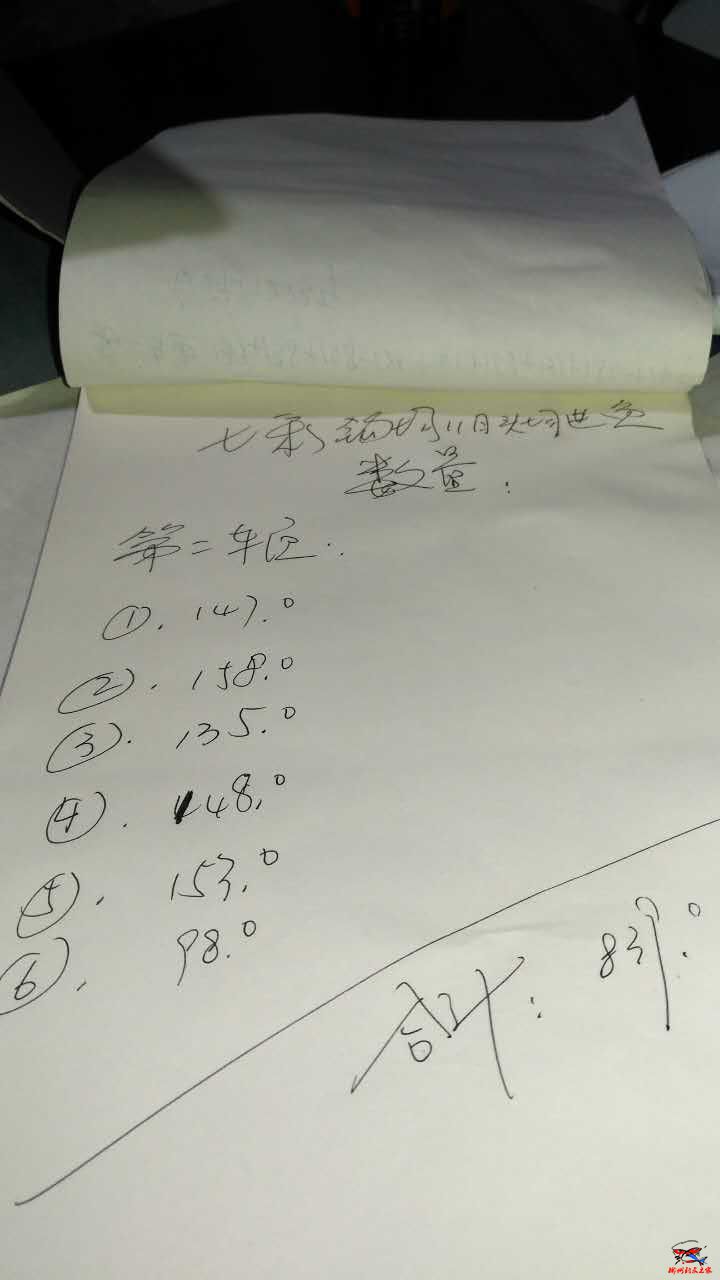 七彩 11月
数量:
第二车
①. 147.0
②. 158.0
③. 135.0
④. 148.0
⑤. 153.0
⑥. 98.0
合计: 839.0
柳州钓友之家